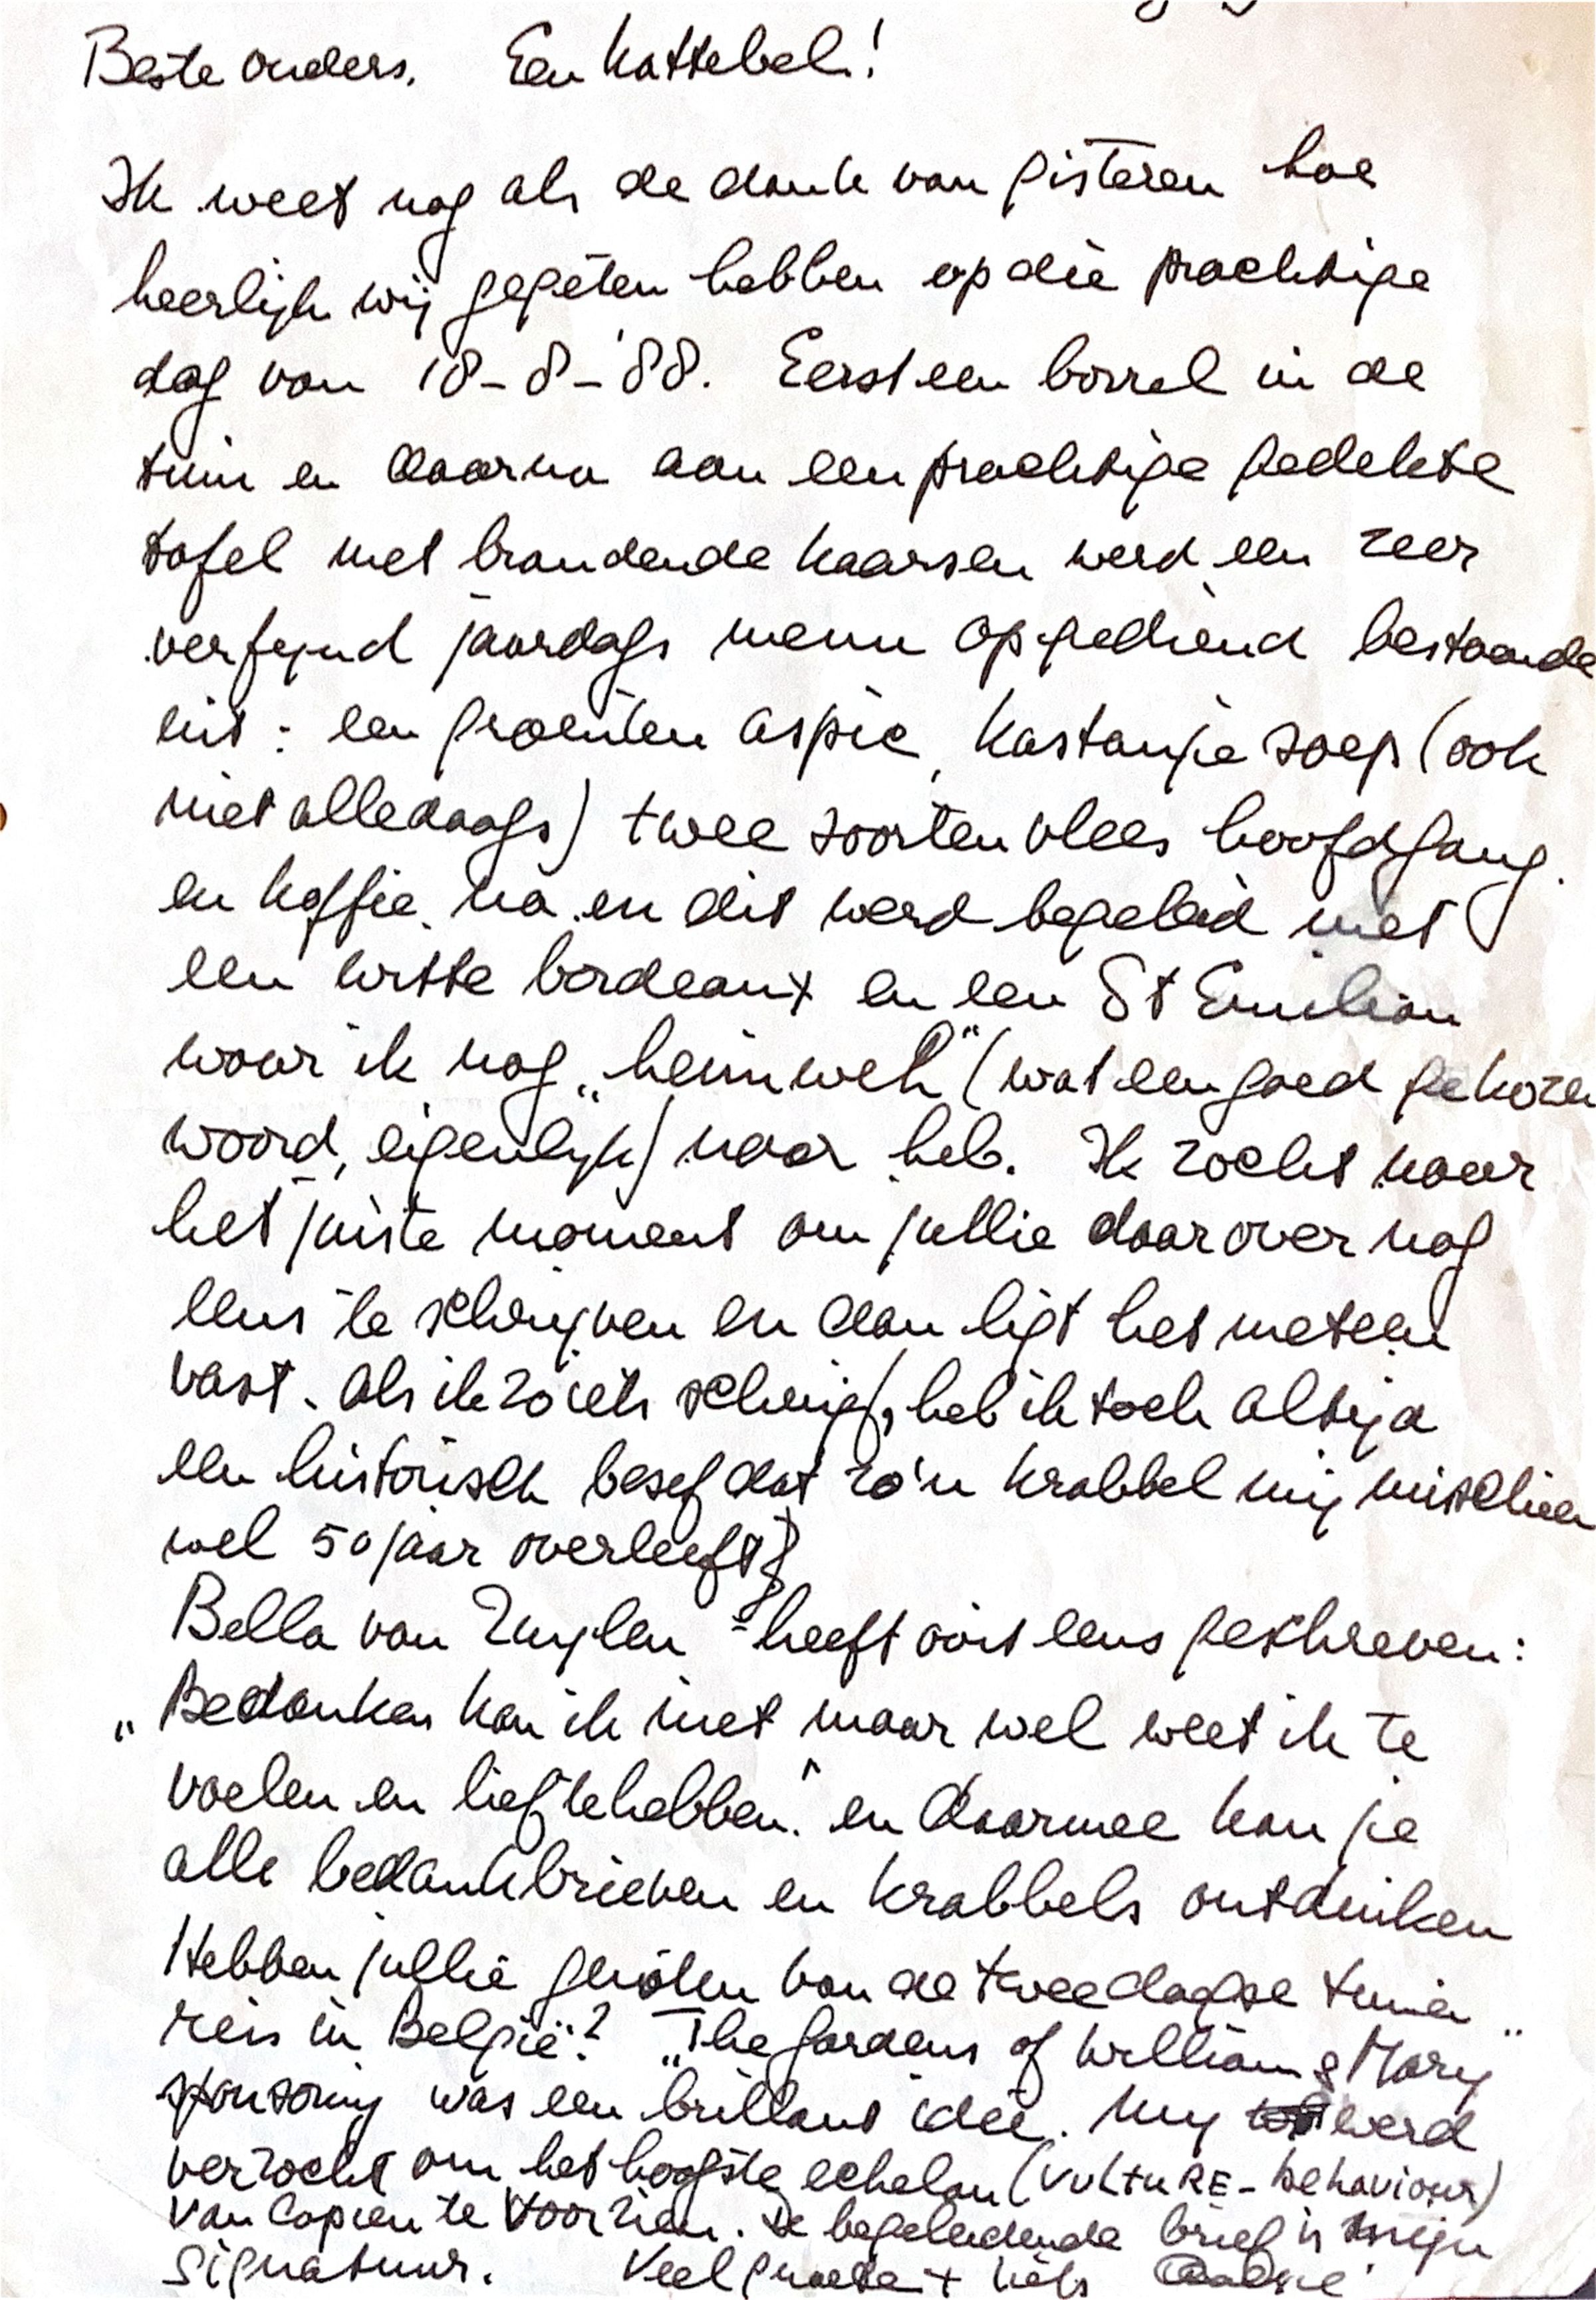 Beste ouders. Een kattebel!
Ik weet nog als de dank van gisteren hoe
heerlijk wij gegeten hebben op die prachtige
dag van 18-8-'88. Eerst een borrel in de
tuin en daarna aan een prachtige gedekte
tafel met brandende kaarsen werd een zeer
verfijnd jaardags menu opgediend bestaande
uit: een groenten aspic, kastanje soep (ook
niet alledaags) twee soorten vlees hoofdgang.
en koffie na en dit werd begeleid met
een witte bordeaux en een St Emilion
waar ik nog „heimweh" (wat een goed gekozen
woord, eigenlijk) naar heb. Ik zocht naar
het juiste moment om jullie daarover nog
eens te schrijven en dan ligt het meteen
vast. Als ik zoiets schrijf, heb ik toch altijd
een historisch besef dat zo'n krabbel mij misschien
wel 50 jaar overleeft
Bella van Zuylen heeft ooit eens geschreven:
„Bedanken kan ik niet maar wel weet ik te
voelen en lief te hebben." en daarmee kan je
alle bedankbrieven en krabbels ontduiken
Hebben jullie genoten van de tweedaagse tuin
reis in België? „The gardens of William & Mary"
sponsoring was een briljant idee. Mij werd
verzocht om het hoogste echelon (VULTURE-behaviour)
van Copien te voorzien. De begeleidende brief is mijn
signatuur. Veel groeten + liefs